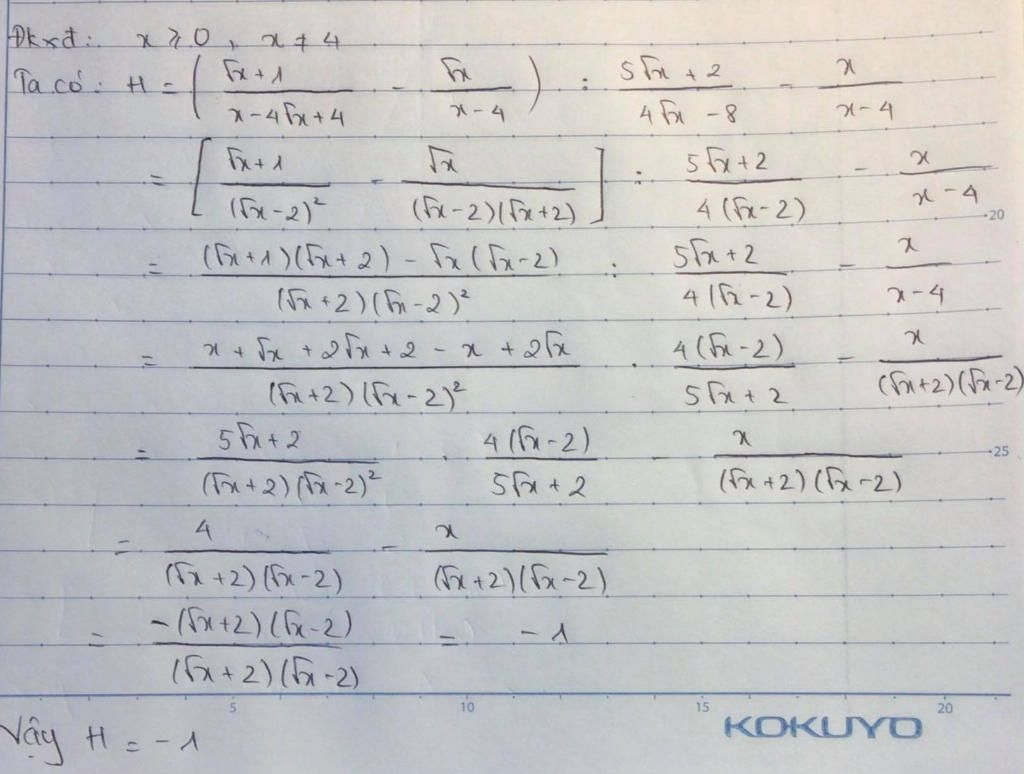 Đkxđ: x ⩾ 0, x ≠ 4
Ta có: H = ( (√x + 1)/(x - 4√x + 4) - √x/(x - 4) ) : (5√x + 2)/(4√x - 8) - x/(x - 4)
= [ (√x + 1)/(√x - 2)² - √x/((√x - 2)(√x + 2)) ] : (5√x + 2)/(4(√x - 2)) - x/(x - 4)
20
= ((√x + 1)(√x + 2) - √x(√x - 2))/((√x + 2)(√x - 2)²) : (5√x + 2)/(4(√x - 2)) - x/(x - 4)
= (x + √x + 2√x + 2 - x + 2√x)/((√x + 2)(√x - 2)²) . (4(√x - 2))/(5√x + 2) - x/((√x + 2)(√x - 2))
= (5√x + 2)/((√x + 2)(√x - 2)²) . (4(√x - 2))/(5√x + 2) - x/((√x + 2)(√x - 2))
25
= 4/((√x + 2)(√x - 2)) - x/((√x + 2)(√x - 2))
= (-(√x + 2)(√x - 2))/((√x + 2)(√x - 2)) = -1
5 10 15 20
Vậy H = -1
KOKUYO